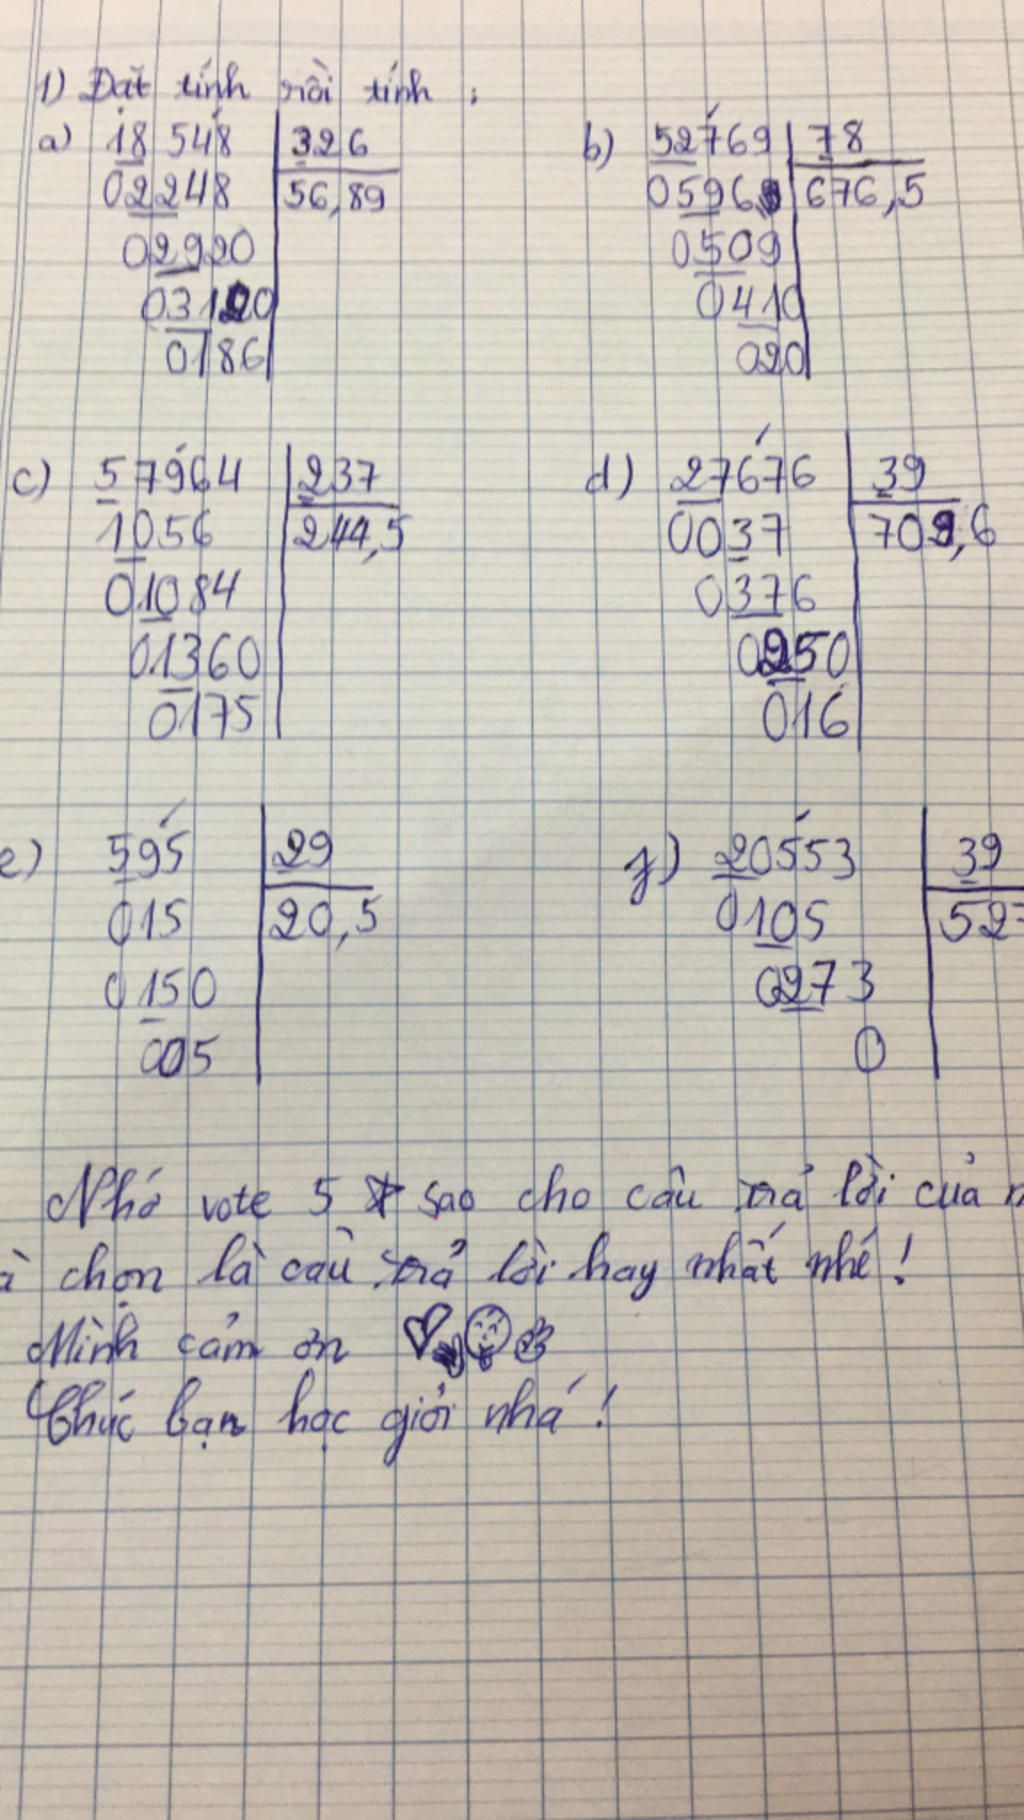 1) Đặt tính rồi tính :
a) 18 548 326 b) 52769 78
02248 56,89 0596 676,5
02920 0509
03120 0410
0186 020
c) 57964 237 d) 27676 39
1056 244,5 0037 709,6
01084 0376
01360 0250
0175 016
e) 595 29 f) 20553 39
015 20,5 0105 527
0150 0273
005 0
Nhớ vote 5 sao cho câu trả lời của
chọn là câu trả lời hay nhất nhé !
Mình cảm ơn
Chúc bạn học giỏi nhá !